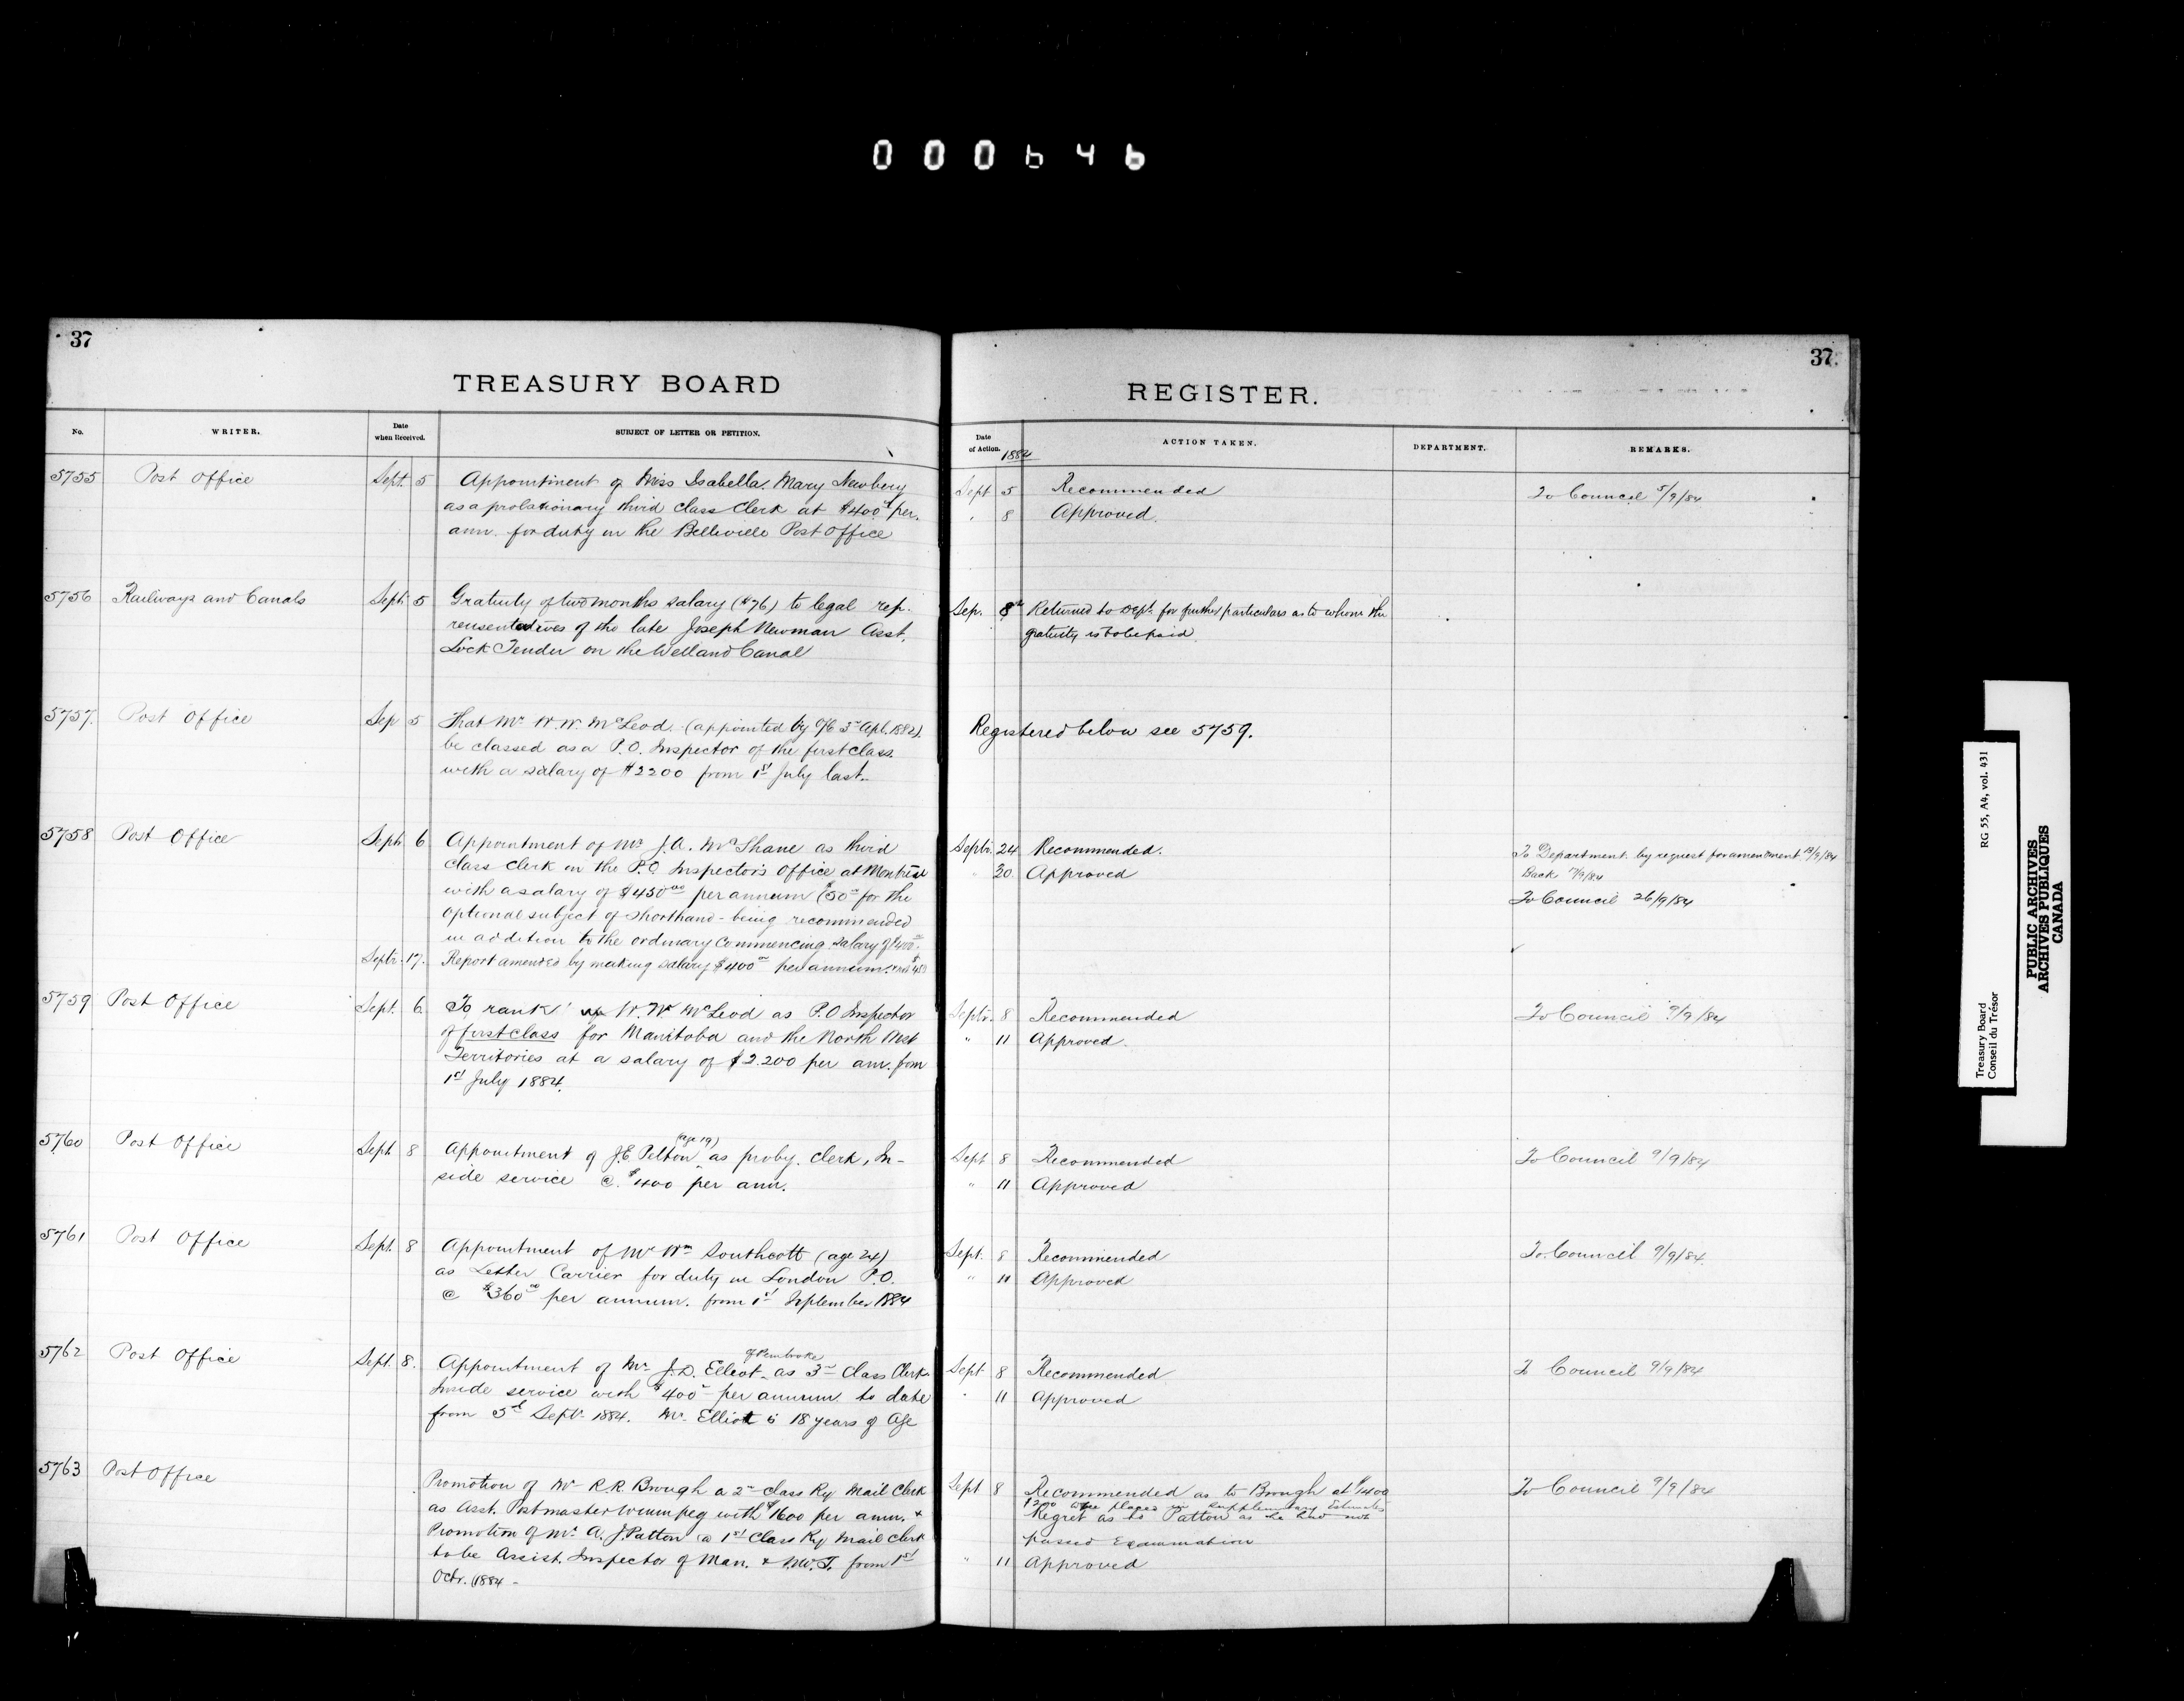 000646
37
37
TREASURY BOARD
REGISTER.
No.
WRITER.
Date when Received.
SUBJECT OF LETTER OR PETITION.
Date of Action. 1884
ACTION TAKEN.
DEPARTMENT.
REMARKS.
5755 Post Office Sept. 5 Appointment of Miss Isabella Mary Newbery
as a probationary third class Clerk at $400 per
ann. for duty in the Belleville Post Office
Sept 5 Recommended To Council 5/9/84
" 8 Approved.
5756 Railways and Canals Sept 5 Gratuity of two months salary ($76) to legal rep-
resentatives of the late Joseph Newman Asst.
Lock Tender on the Welland Canal
Sep. 8th Returned to Dept. for further particulars as to whom the
gratuity is to be paid
5757. Post Office Sep 5 That Mr. W.W. McLeod (appointed by O/C 3rd Apl. 1882)
be classed as a P.O. Inspector of the first class
with a salary of $2200 from 1st July last.
Registered below see 5759.
5758 Post Office Sept 6 Appointment of Mr J.A. McShane as third
class Clerk in the P.O. Inspectors Office at Montreal
with a salary of $450.00 per annum ($50 for the
optional subject of shorthand - being recommended
in addition to the ordinary commencing salary of $400.
Septr. 17. Report amended by making salary $400 per annum
Septr. 24 Recommended. To Department by request for amendment 13/9/84
" 20 Approved Back 17/9/84
To Council 26/9/84
5759 Post Office Sept. 6 To rank W.W. McLeod as P.O Inspector
of first class for Manitoba and the North West
Territories at a salary of $2.200 per ann. from
1st July 1884.
Septr. 8 Recommended To Council 9/9/84
" 11 Approved.
5760 Post Office Sept 8 Appointment of J.E. Pelton (age 19) as proby. clerk, In-
side service @ $400 per ann.
Sept 8 Recommended To Council 9/9/84
" 11 Approved
5761 Post Office Sept. 8 Appointment of Mr Wm Southcott (age 24)
as Letter Carrier for duty in London P.O.
@ $360.00 per annum. from 1st September 1884
Sept. 8 Recommended To Council 9/9/84.
" 11 Approved
5762 Post Office Sept. 8. Appointment of Mr. J.D. Elliot of Pembroke as 3rd Class Clerk
Inside service with $400 per annum to date
from 5th Septr. 1884. Mr. Elliot is 18 years of Age
Sept 8 Recommended To Council 9/9/84
" 11 Approved
5763 Post Office Promotion of Mr R.R. Brough a 2nd class Ry Mail Clerk
as Asst. Postmaster Winnipeg with $1600 per ann. +
Promotion of Mr. A. J. Patton a 1st Class Ry Mail Clerk
to be Assist. Inspector of Man. & N.W.T. from 1st
Octr. 1884 -
Sept 8 Recommended as to Brough at $1400 To Council 9/9/84
$200 to be placed in Supplementary Estimates
Regret as to Patton as he had not
passed Examination
" 11 Approved
Treasury Board
Conseil du Trésor
RG 55, A4, vol. 431
PUBLIC ARCHIVES
ARCHIVES PUBLIQUES
CANADA